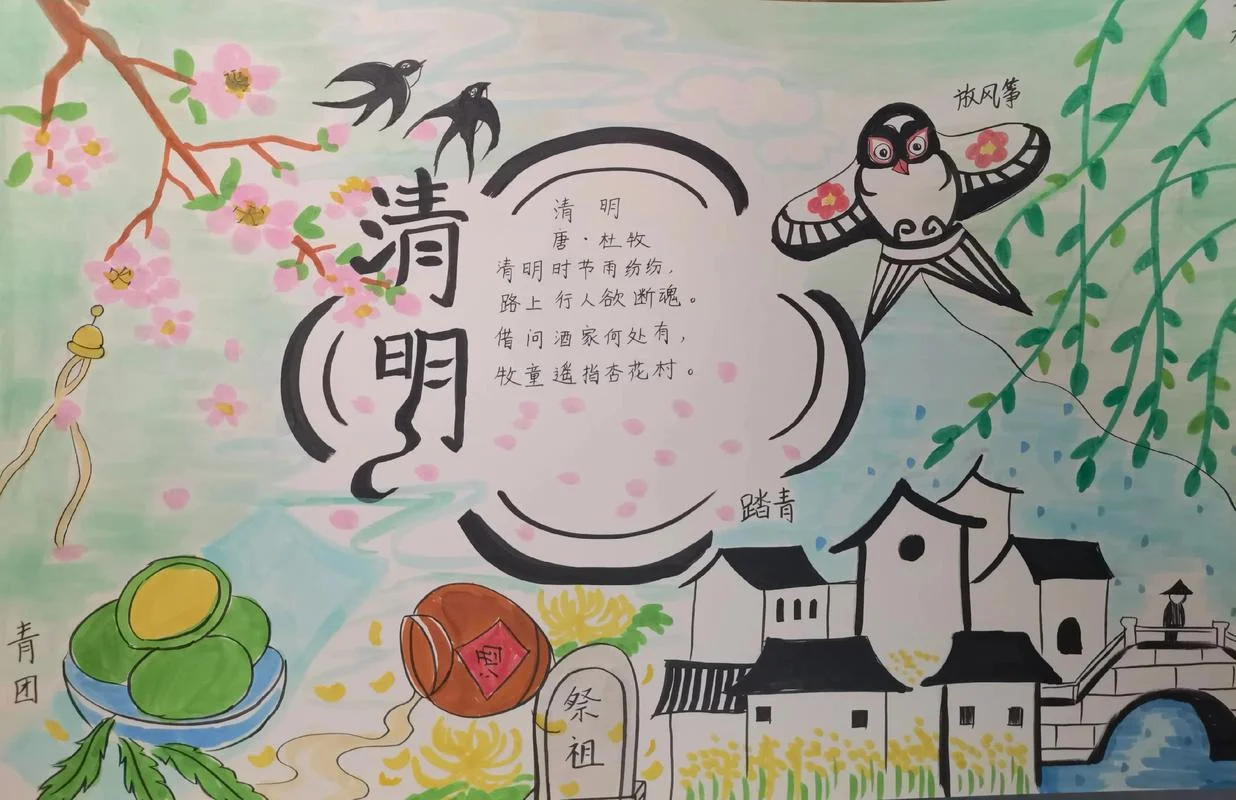 放风筝
清明
清 明
唐·杜牧
清明时节雨纷纷,
路上行人欲断魂。
借问酒家何处有,
牧童遥指杏花村。
踏青
青团
酒
祭祖